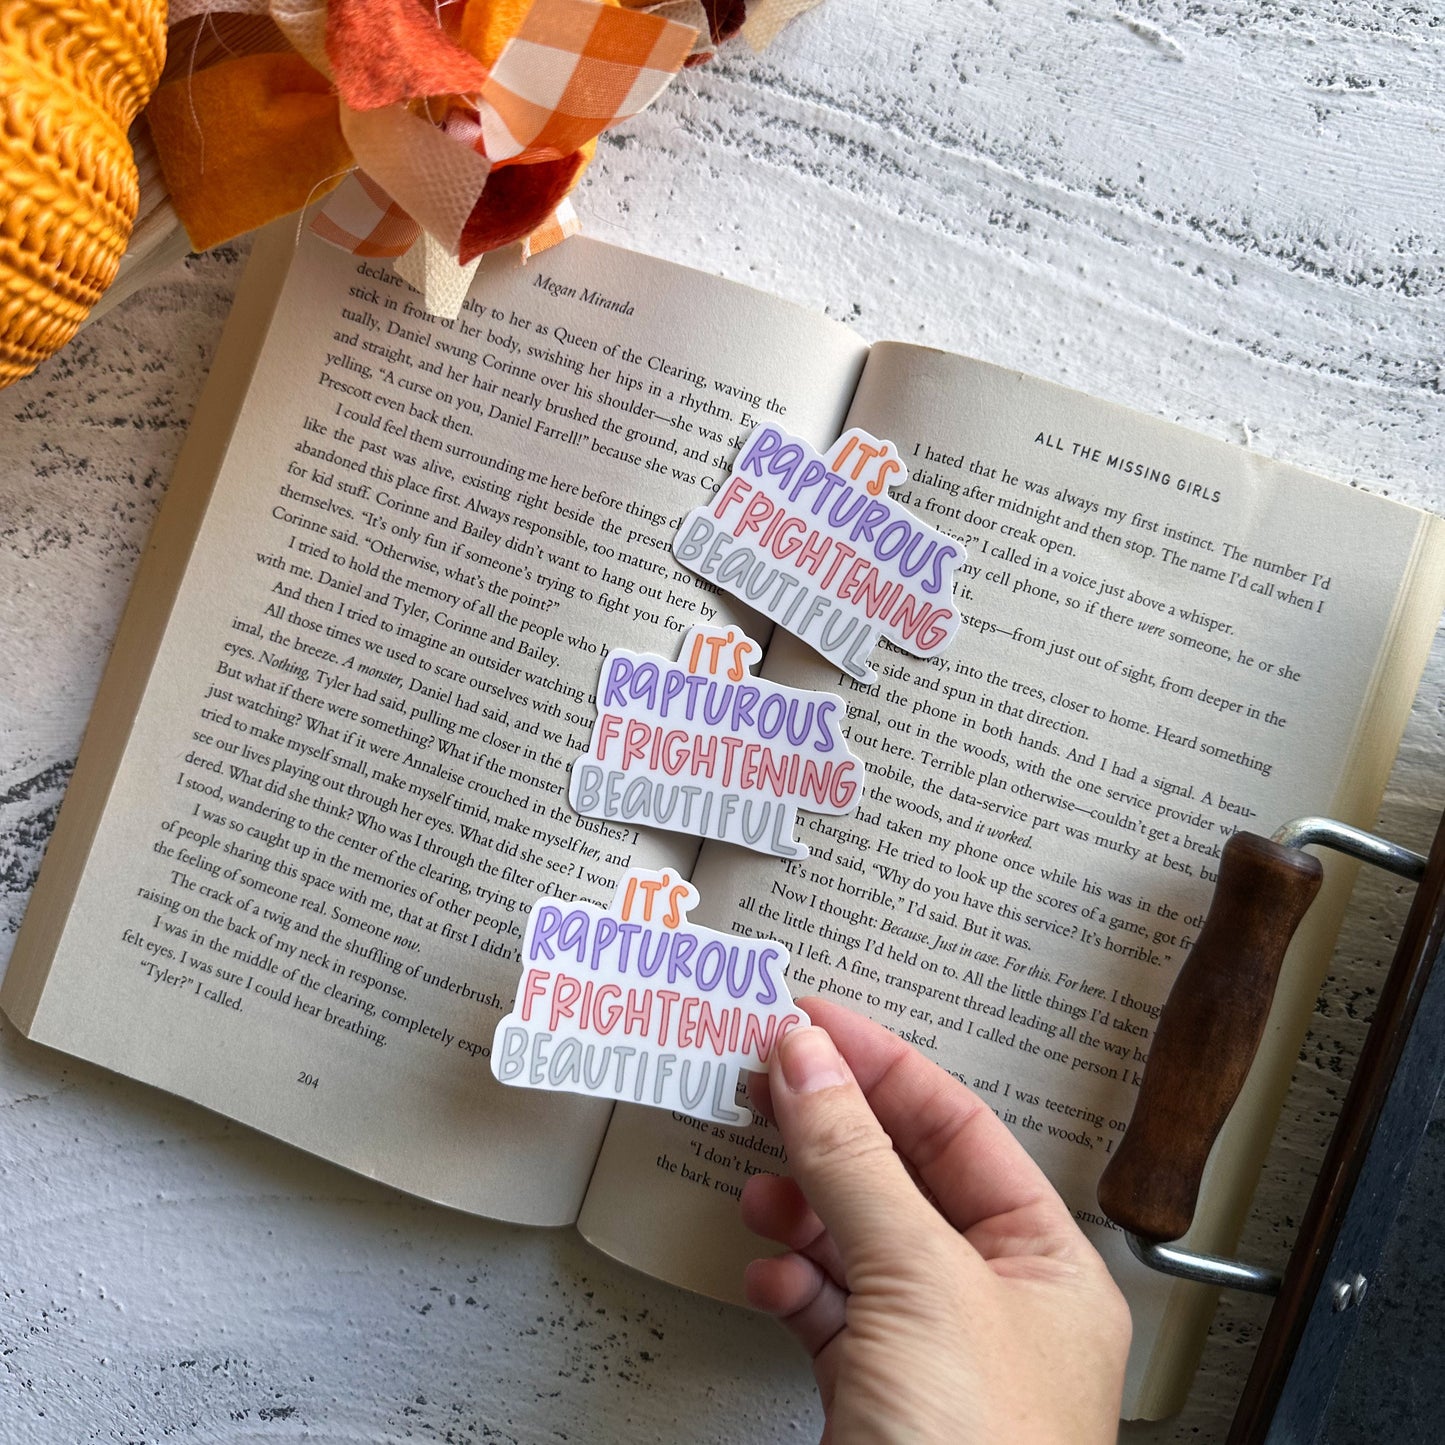 Megan Miranda
declare alty to her as Queen of the Clearing, waving the
stick in front of her body, swishing her hips in a rhythm. Ev
tually, Daniel swung Corinne over his shoulder—she was sk
and straight, and her hair nearly brushed the ground, and she
yelling, “A curse on you, Daniel Farrell!” because she was Co
Prescott even back then.
I could feel them surrounding me here before things cl
like the past was alive, existing right beside the presen
abandoned this place first. Always responsible, too mature, no time
for kid stuff. Corinne and Bailey didn’t want to hang out here by
themselves. “It’s only fun if someone’s trying to fight you for
Corinne said. “Otherwise, what’s the point?”
I tried to hold the memory of all the people who
with me. Daniel and Tyler, Corinne and Bailey.
And then I tried to imagine an outsider watching
All those times we used to scare ourselves with
imal, the breeze. A monster, Daniel had said, and we had
eyes. Nothing, Tyler had said, pulling me closer in the
But what if there were something? What if the monster
just watching? What if it were Annaleise crouched in the bushes? I
tried to make myself small, make myself timid, make myself her, and
see our lives playing out through her eyes. What did she see? I won
dered. What did she think? Who was I through the filter of her eyes
I stood, wandering to the center of the clearing, trying to
I was so caught up in the memories of other people,
of people sharing this space with me, that at first I didn’t
the feeling of someone real. Someone now.
The crack of a twig and the shuffling of underbrush.
raising on the back of my neck in response.
I was in the middle of the clearing, completely expo
felt eyes. I was sure I could hear breathing.
“Tyler?” I called.
204
ALL THE MISSING GIRLS
I hated that he was always my first instinct. The number I’d
dialing after midnight and then stop. The name I’d call when I
ard a front door creak open.
I called in a voice just above a whisper.
my cell phone, so if there were someone, he or she
it.
steps—from just out of sight, from deeper in the
away, into the trees, closer to home. Heard something
side and spun in that direction.
I held the phone in both hands. And I had a signal. A beau-
gnal, out in the woods, with the one service provider
out here. Terrible plan otherwise—couldn’t get a break
mobile, the data-service part was murky at best, bu
the woods, and it worked.
had taken my phone once while his was in the oth
charging. He tried to look up the scores of a game, got fr
and said, “Why do you have this service? It’s horrible.”
“It’s not horrible,” I’d said. But it was.
Now I thought: Because. Just in case. For this. For here. I though
all the little things I’d held on to. All the little things I’d taken
me when I left. A fine, transparent thread leading all the way ho
the phone to my ear, and I called the one person I k
asked.
and I was teetering on
in the woods,” I
Gone as suddenly
“I don’t know
the bark roug
smoke.
IT’S
RAPTUROUS
FRIGHTENING
BEAUTIFUL
IT’S
RAPTUROUS
FRIGHTENING
BEAUTIFUL
IT’S
RAPTUROUS
FRIGHTENING
BEAUTIFUL